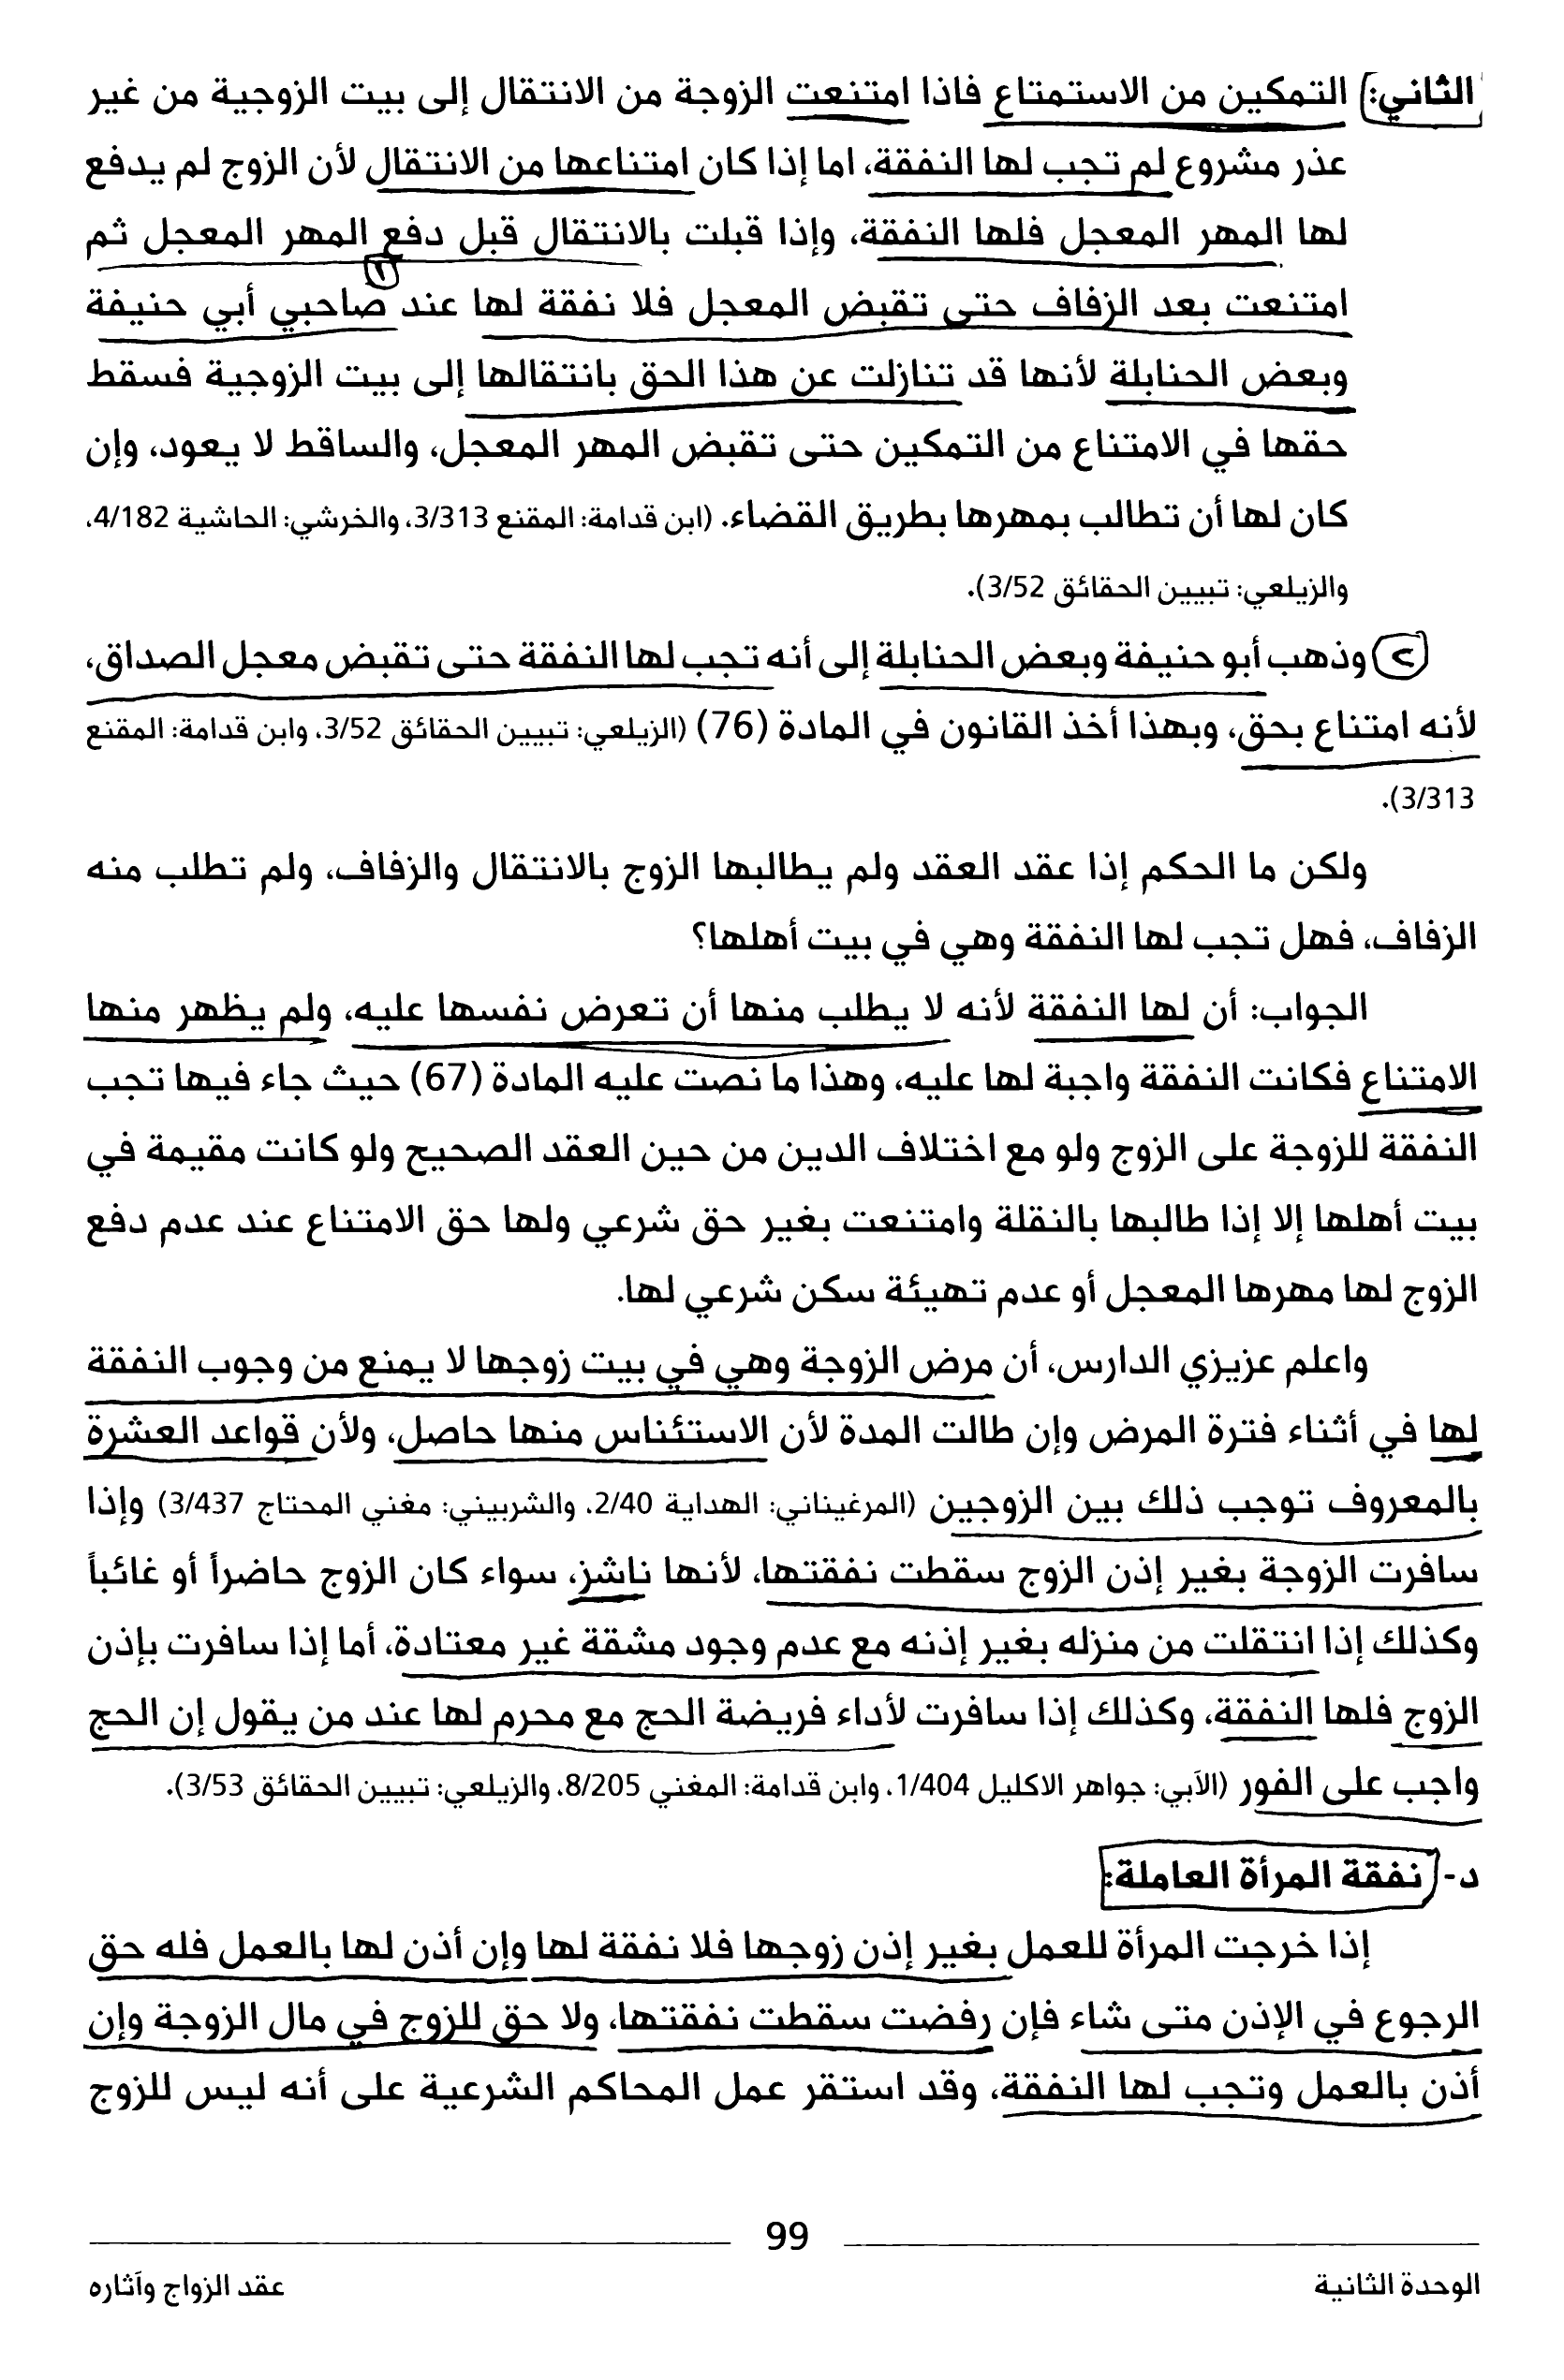 الثاني: التمكين من الاستمتاع فاذا امتنعت الزوجة من الانتقال إلى بيت الزوجية من غير
عذر مشروع لم تجب لها النفقة، اما إذا كان امتناعها من الانتقال لأن الزوج لم يدفع
لها المهر المعجل فلها النفقة، وإذا قبلت بالانتقال قبل دفع المهر المعجل ثم
امتنعت بعد الزفاف حتى تقبض المعجل فلا نفقة لها عند ١ صاحبي أبي حنيفة
وبعض الحنابلة لأنها قد تنازلت عن هذا الحق بانتقالها إلى بيت الزوجية فسقط
حقها في الامتناع من التمكين حتى تقبض المهر المعجل، والساقط لا يعود، وإن
كان لها أن تطالب بمهرها بطريق القضاء. (ابن قدامة: المقنع 3/313، والخرشي: الحاشية 4/182،
والزيلعي: تبيين الحقائق 3/52).
٢ وذهب أبو حنيفة وبعض الحنابلة إلى أنه تجب لها النفقة حتى تقبض معجل الصداق،
لأنه امتناع بحق، وبهذا أخذ القانون في المادة (76) (الزيلعي: تبيين الحقائق 3/52، وابن قدامة: المقنع
3/313).
ولكن ما الحكم إذا عقد العقد ولم يطالبها الزوج بالانتقال والزفاف، ولم تطلب منه
الزفاف، فهل تجب لها النفقة وهي في بيت أهلها؟
الجواب: أن لها النفقة لأنه لا يطلب منها أن تعرض نفسها عليه، ولم يظهر منها
الامتناع فكانت النفقة واجبة لها عليه، وهذا ما نصت عليه المادة (67) حيث جاء فيها تجب
النفقة للزوجة على الزوج ولو مع اختلاف الدين من حين العقد الصحيح ولو كانت مقيمة في
بيت أهلها إلا إذا طالبها بالنقلة وامتنعت بغير حق شرعي ولها حق الامتناع عند عدم دفع
الزوج لها مهرها المعجل أو عدم تهيئة سكن شرعي لها.
واعلم عزيزي الدارس، أن مرض الزوجة وهي في بيت زوجها لا يمنع من وجوب النفقة
لها في أثناء فترة المرض وإن طالت المدة لأن الاستئناس منها حاصل، ولأن قواعد العشرة
بالمعروف توجب ذلك بين الزوجين (المرغيناني: الهداية 2/40، والشربيني: مغني المحتاج 3/437) وإذا
سافرت الزوجة بغير إذن الزوج سقطت نفقتها، لأنها ناشز، سواء كان الزوج حاضراً أو غائباً
وكذلك إذا انتقلت من منزله بغير إذنه مع عدم وجود مشقة غير معتادة، أما إذا سافرت بإذن
الزوج فلها النفقة، وكذلك إذا سافرت لأداء فريضة الحج مع محرم لها عند من يقول إن الحج
واجب على الفور (الآبي: جواهر الاكليل 1/404، وابن قدامة: المغني 8/205، والزيلعي: تبيين الحقائق 3/53).
د- نفقة المرأة العاملة:
إذا خرجت المرأة للعمل بغير إذن زوجها فلا نفقة لها وإن أذن لها بالعمل فله حق
الرجوع في الإذن متى شاء فإن رفضت سقطت نفقتها، ولا حق للزوج في مال الزوجة وإن
أذن بالعمل وتجب لها النفقة، وقد استقر عمل المحاكم الشرعية على أنه ليس للزوج
99
الوحدة الثانية
عقد الزواج وآثاره